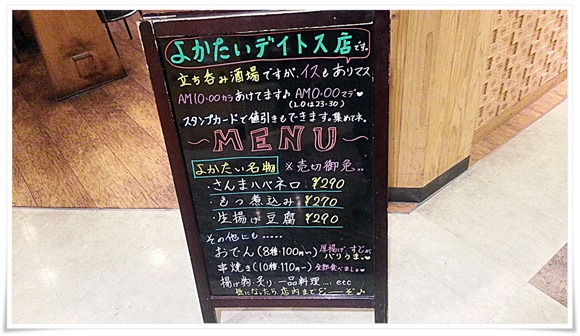 よかたいデイトス店です。
立ち呑み酒場ですが、イスもありマス
AM10:00カラあけてます♪ AM0:00マデ♥
(L.Oは23:30)
スタンプカードで値引きもできます。集めてネ。
～MENU～
よかたい名物 ※売切御免..
・さんまハバネロ ¥290
・もつ煮込み ¥270
・生揚げ豆腐 ¥290
その他にも.....
おでん(8種・100円～) 厚揚げ、すじがバリうま。♥
串焼き(10種・110円～) 全部食べましょ♥
揚げ物・炙り・一品料理.... etc
気になったら店内までど〜ぞ♪